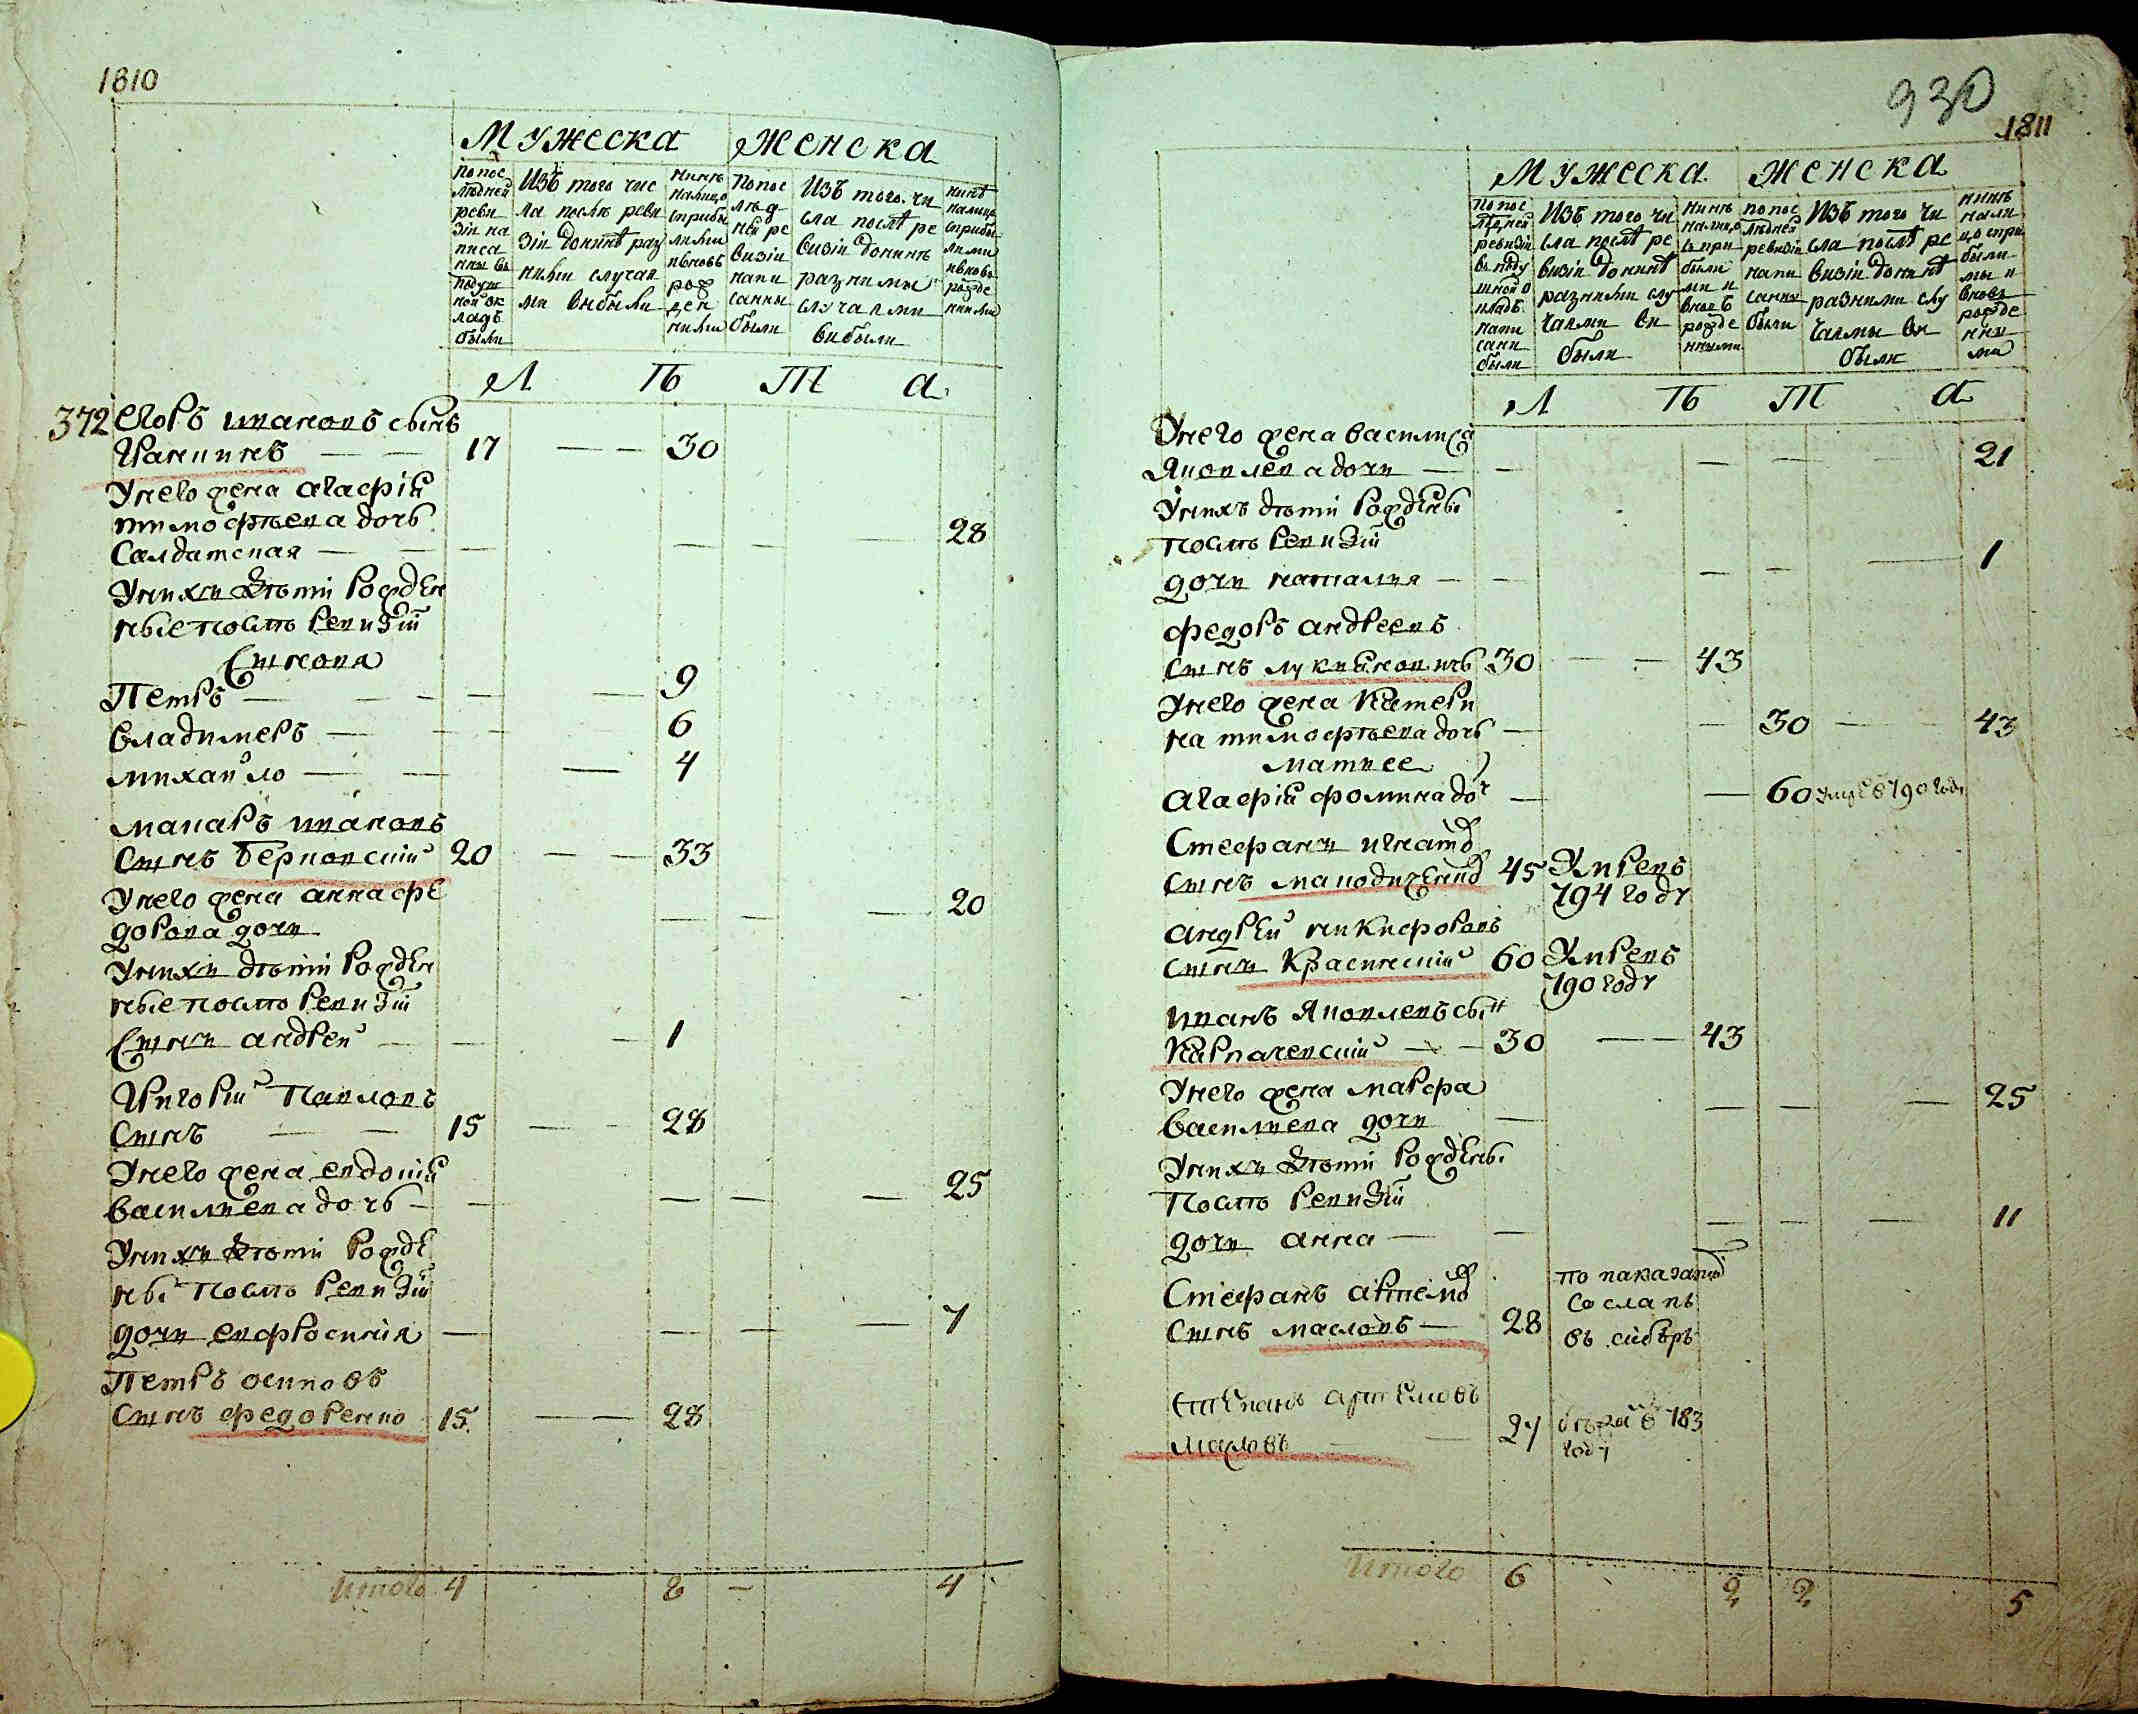 1810
Мужеска Женска
по пос
лѣдней
реви
зіи на
писа
ны въ
подуш
ной ок
ладъ
были
Изъ того чис
ла послѣ реви
зіи донинѣ раз
ными случая
ми выбыли
нинѣ
налицо
сприбы
лыми
ивновь
рож
ден
ными
попос
лѣд
ней ре
визіи
напи
санны
были
Изъ того чи
сла послѣ ре
визіи донинѣ
разними
случаями
вибыли
нинѣ
налицо
сприбы
лими
ивновь
рожде
ними
Л Ѣ Т а
372 Егоръ ивановъ сынъ
17 — — 30
Унего жена агафія
тимофѣева дочь
Салдатская — — — — — — 28
Унихъ дѣти рожден
ные послѣ ревизіи
Сыновя
Петръ — — — — 9
владимеръ — — — — 6
михайло — — — 4
макаръ ивановъ
Сынъ Берновский 20 — — 33
Унего жена анна фе
дорова дочь — — — 20
Унихъ дѣти рожден
ные послѣ ревизіи
Сынъ андрей — — — 1
Григорий Павловъ
Сынъ — — 15 — — 28
Унего жена евдокия
василиева дочь — — — — — 25
Унихъ дѣти рожде
ны послѣ ревизіи
дочь евфросиния — — — — 7
Петръ осиповъ
Сынъ федоренко 15 — — 28
итого 4 8 — 4
930
1811
Мужеска Женска
попос
лѣдней
ревизіи
въ поду
шной о
кладъ
напи
сани
были
Изъ того чи
сла послѣ ре
визіи донинѣ
разними слу
чаями ви
были
нинѣ
налицо
спри
были
ми и
вновь
рожде
нными
попос
лѣдней
ревизіи
напи
санны
были
Изъ того чи
сла послѣ ре
визіи донинѣ
разними слу
чаями ви
были
нинѣ
нали
цо спри
были
ми и
вновь
рожде
нны
ми
Л Ѣ Т а
Унего жена василиса
Яковлева дочь — — — — — 21
Унихъ дѣти рождены
послѣ ревизіи
дочь наталия — — — — — 1
федоръ андреевъ
Сынъ лукияновичъ 30 — — 43
Унего жена Катери
на тимофѣева дочь — — 30 — — 43
мать ее
агафія фомина доч — — 60 умре в 790 году
Стефанъ игнатов
Сынъ 45 Умревъ
794 году
андрей никифоровъ
Сынъ Краснский 60 Умревъ
790 году
иванъ Яковлевъ сын
Карпачевский — — 30 — — 43
Унего жена марфа
василиева дочь — — — — 25
Унихъ дѣти рождены
Послѣ ревизіи
дочь анна — — — — — 11
Стефанъ артемов
Сынъ масловъ — 28 по наказанию
сосланъ
въ сибѣрь
Степанъ артемовъ
масловъ — — 27 в 783
году
итого 6 2 2 5